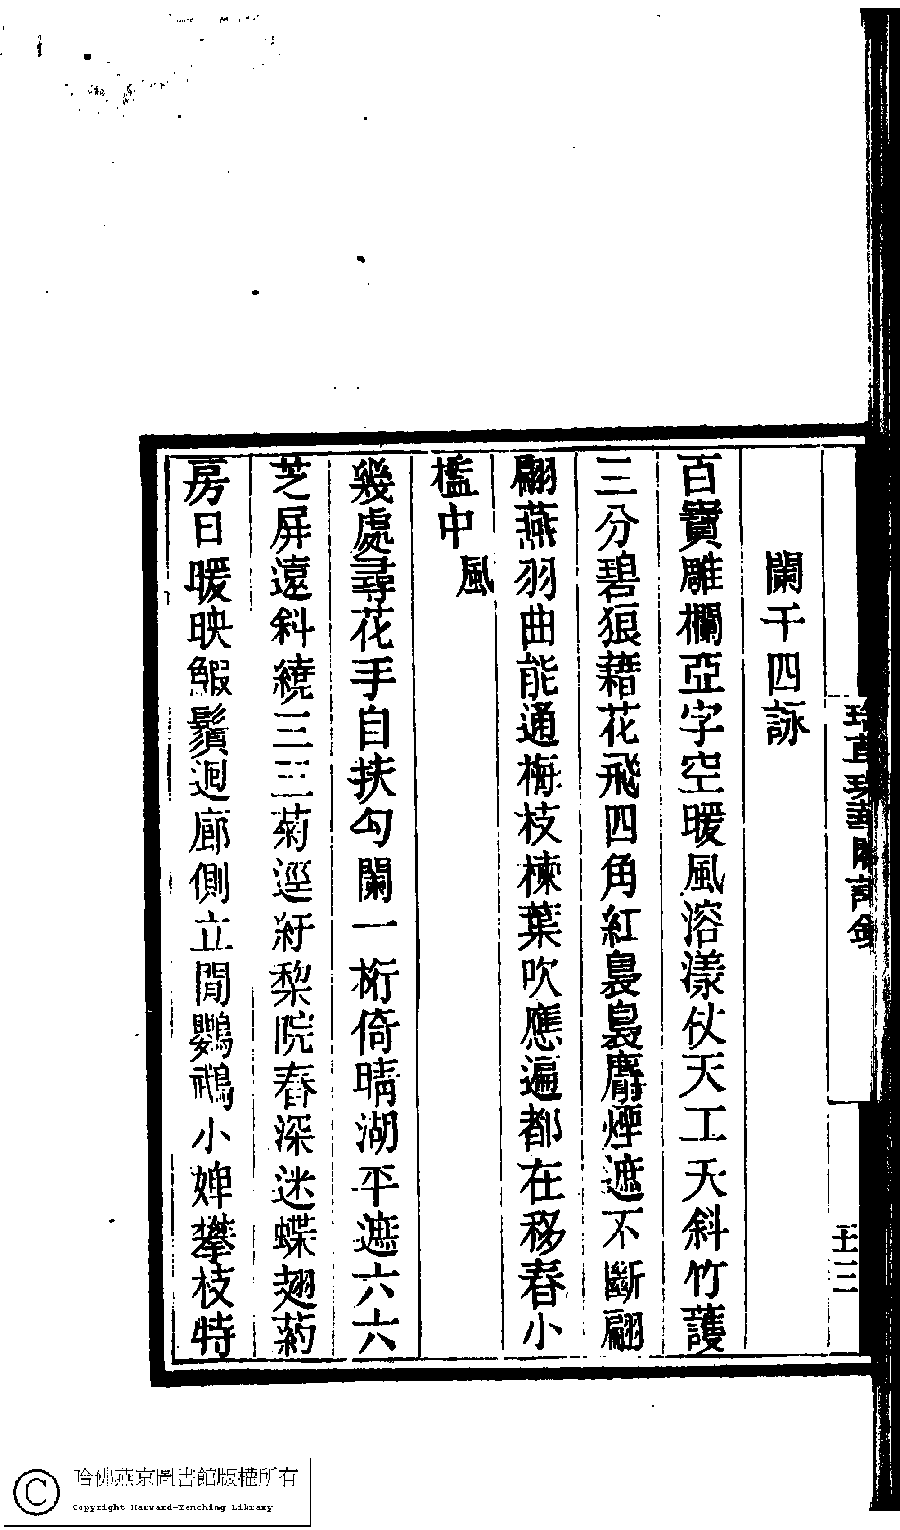 闌干四詠
百寶雕欄亞字空暖風溶漾仗天工夭斜竹護
三分碧狼藉花飛四角紅裊裊麝煙遮不斷翩
翩燕羽曲能通梅枝楝葉吹應遍都在移春小
檻中風
幾處尋花手自扶勾闌一桁倚晴湖平遮六六
芝屏遠斜繞三三菊逕紆棃院春深迷蝶翅葯
房日暖映鰕鬚迴廊側立閒鸚鵡小婢攀枝特
哈佛燕京圖書館版權所有
Copyright Harvard-Yenching Library